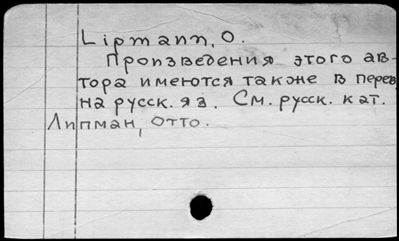 Lipmann, O.
Произведения этого ав-
тора имеются также в перев.
на русск. яз. См. русск. кат.
Липман, Отто.